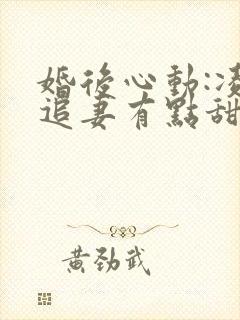 婚後心動:
追妻有點甜
黃勁武